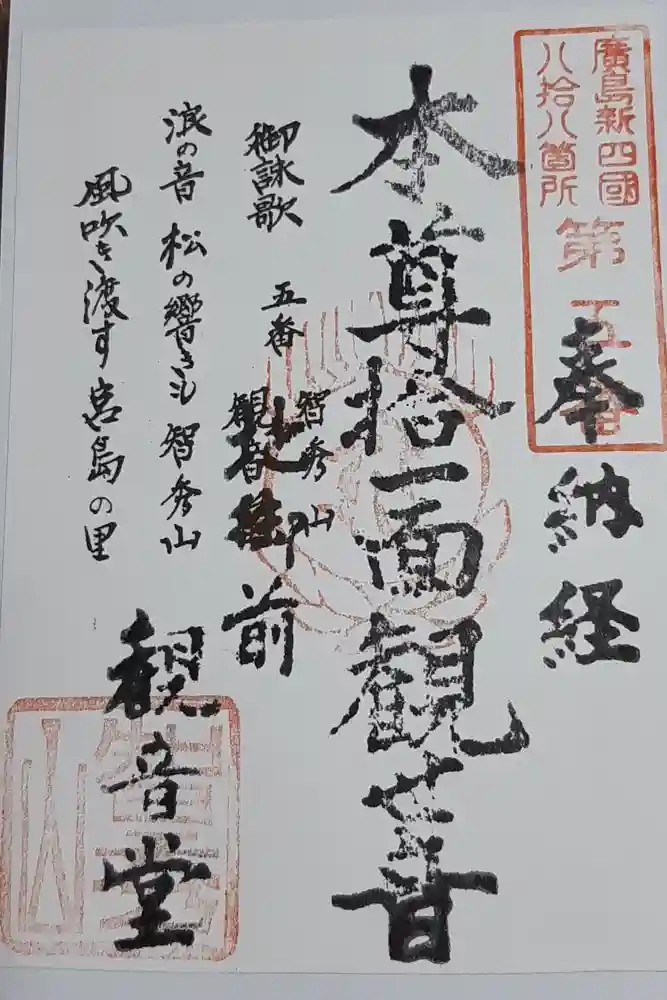 廣島新四國
八拾八箇所
第五番
奉納経
本尊拾一面観世音
御詠歌 五番 智秀山
観音
御前
浪の音 松の響きも 智秀山
風吹き渡す 宮島の里
観音堂